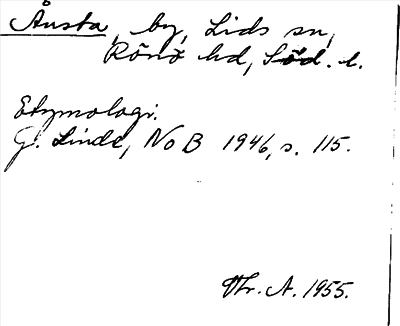 Ånsta, by, Lids sn,
Rönö hd, Söd. l.
Etymologi.
G. Linde, NoB 1946, s. 115.
Thr. A. 1955.